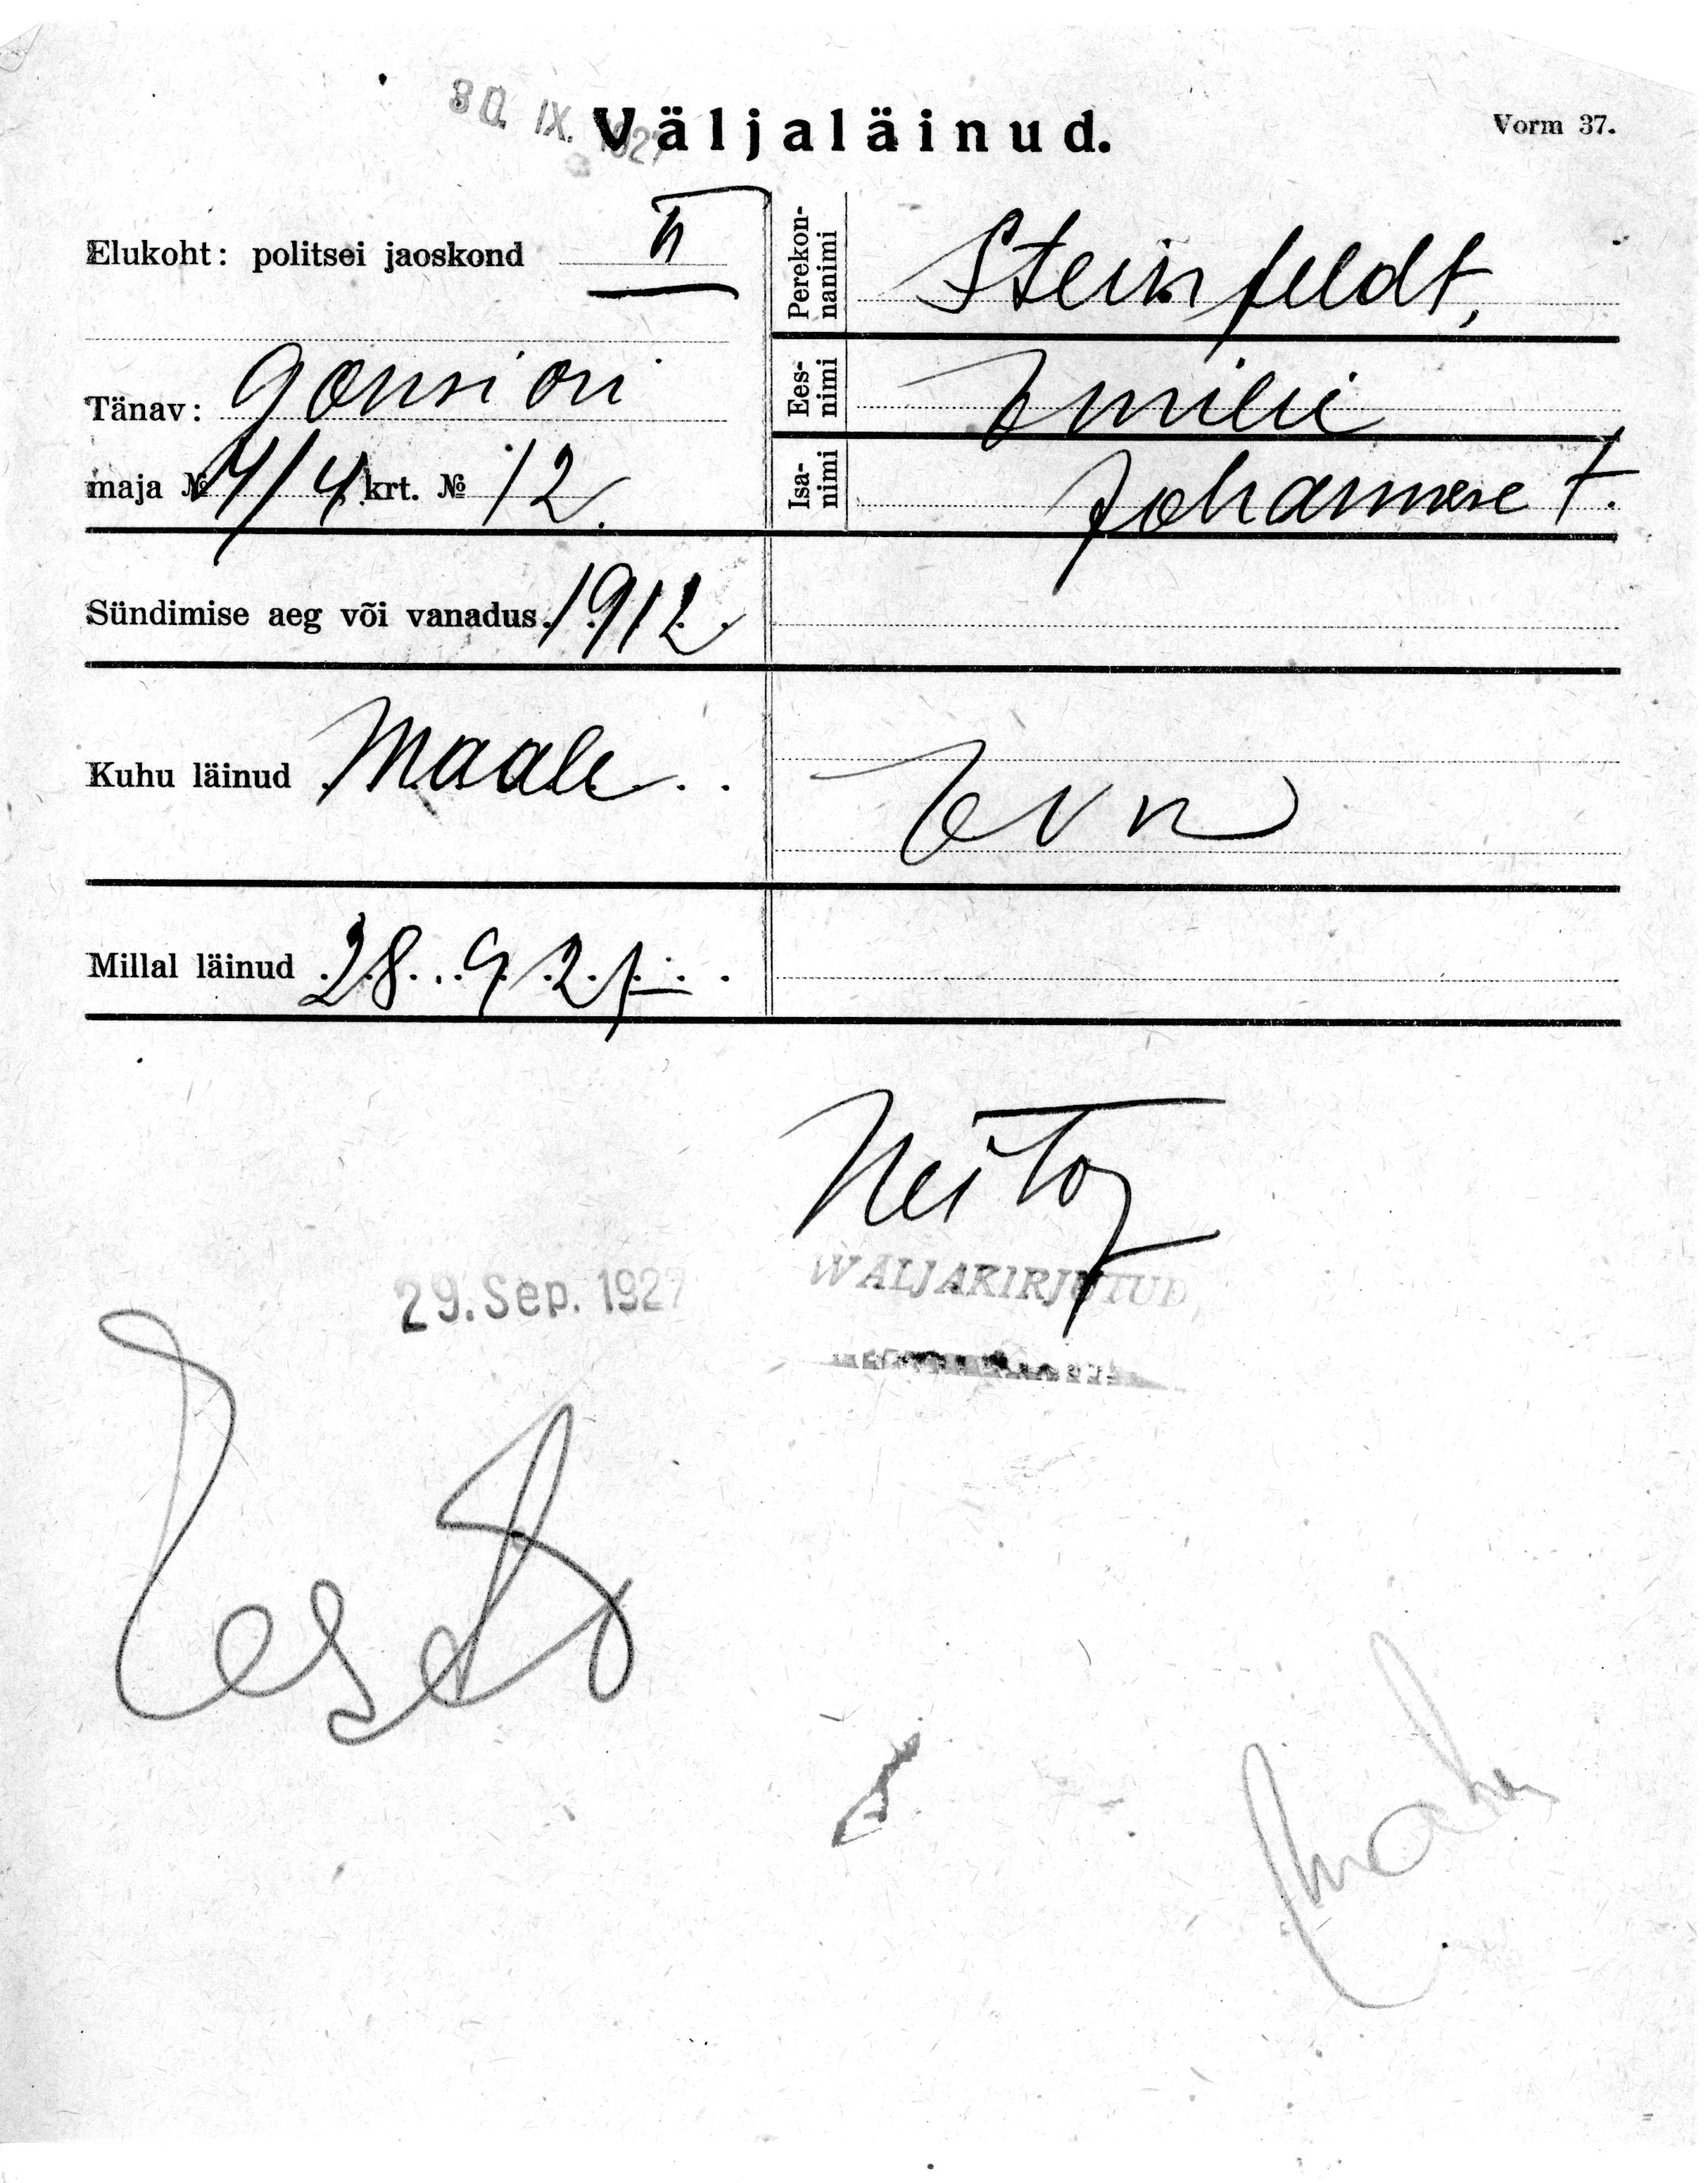 30. IX. 1927
Väljaläinud.
Vorm 37.
Elukoht: politsei jaoskond II
Tänav: Gonsiori
maja № 4/4 krt. № 12.
Perekonnanimi Steinfeldt,
Eesnimi Emilie
Isanimi Johannese t.
Sündimise aeg või vanadus 1912
Kuhu läinud Maale
Evn
Millal läinud 28. 9. 27.
29. Sep. 1927
WÄLJAKIRJUTUD,
Eesti